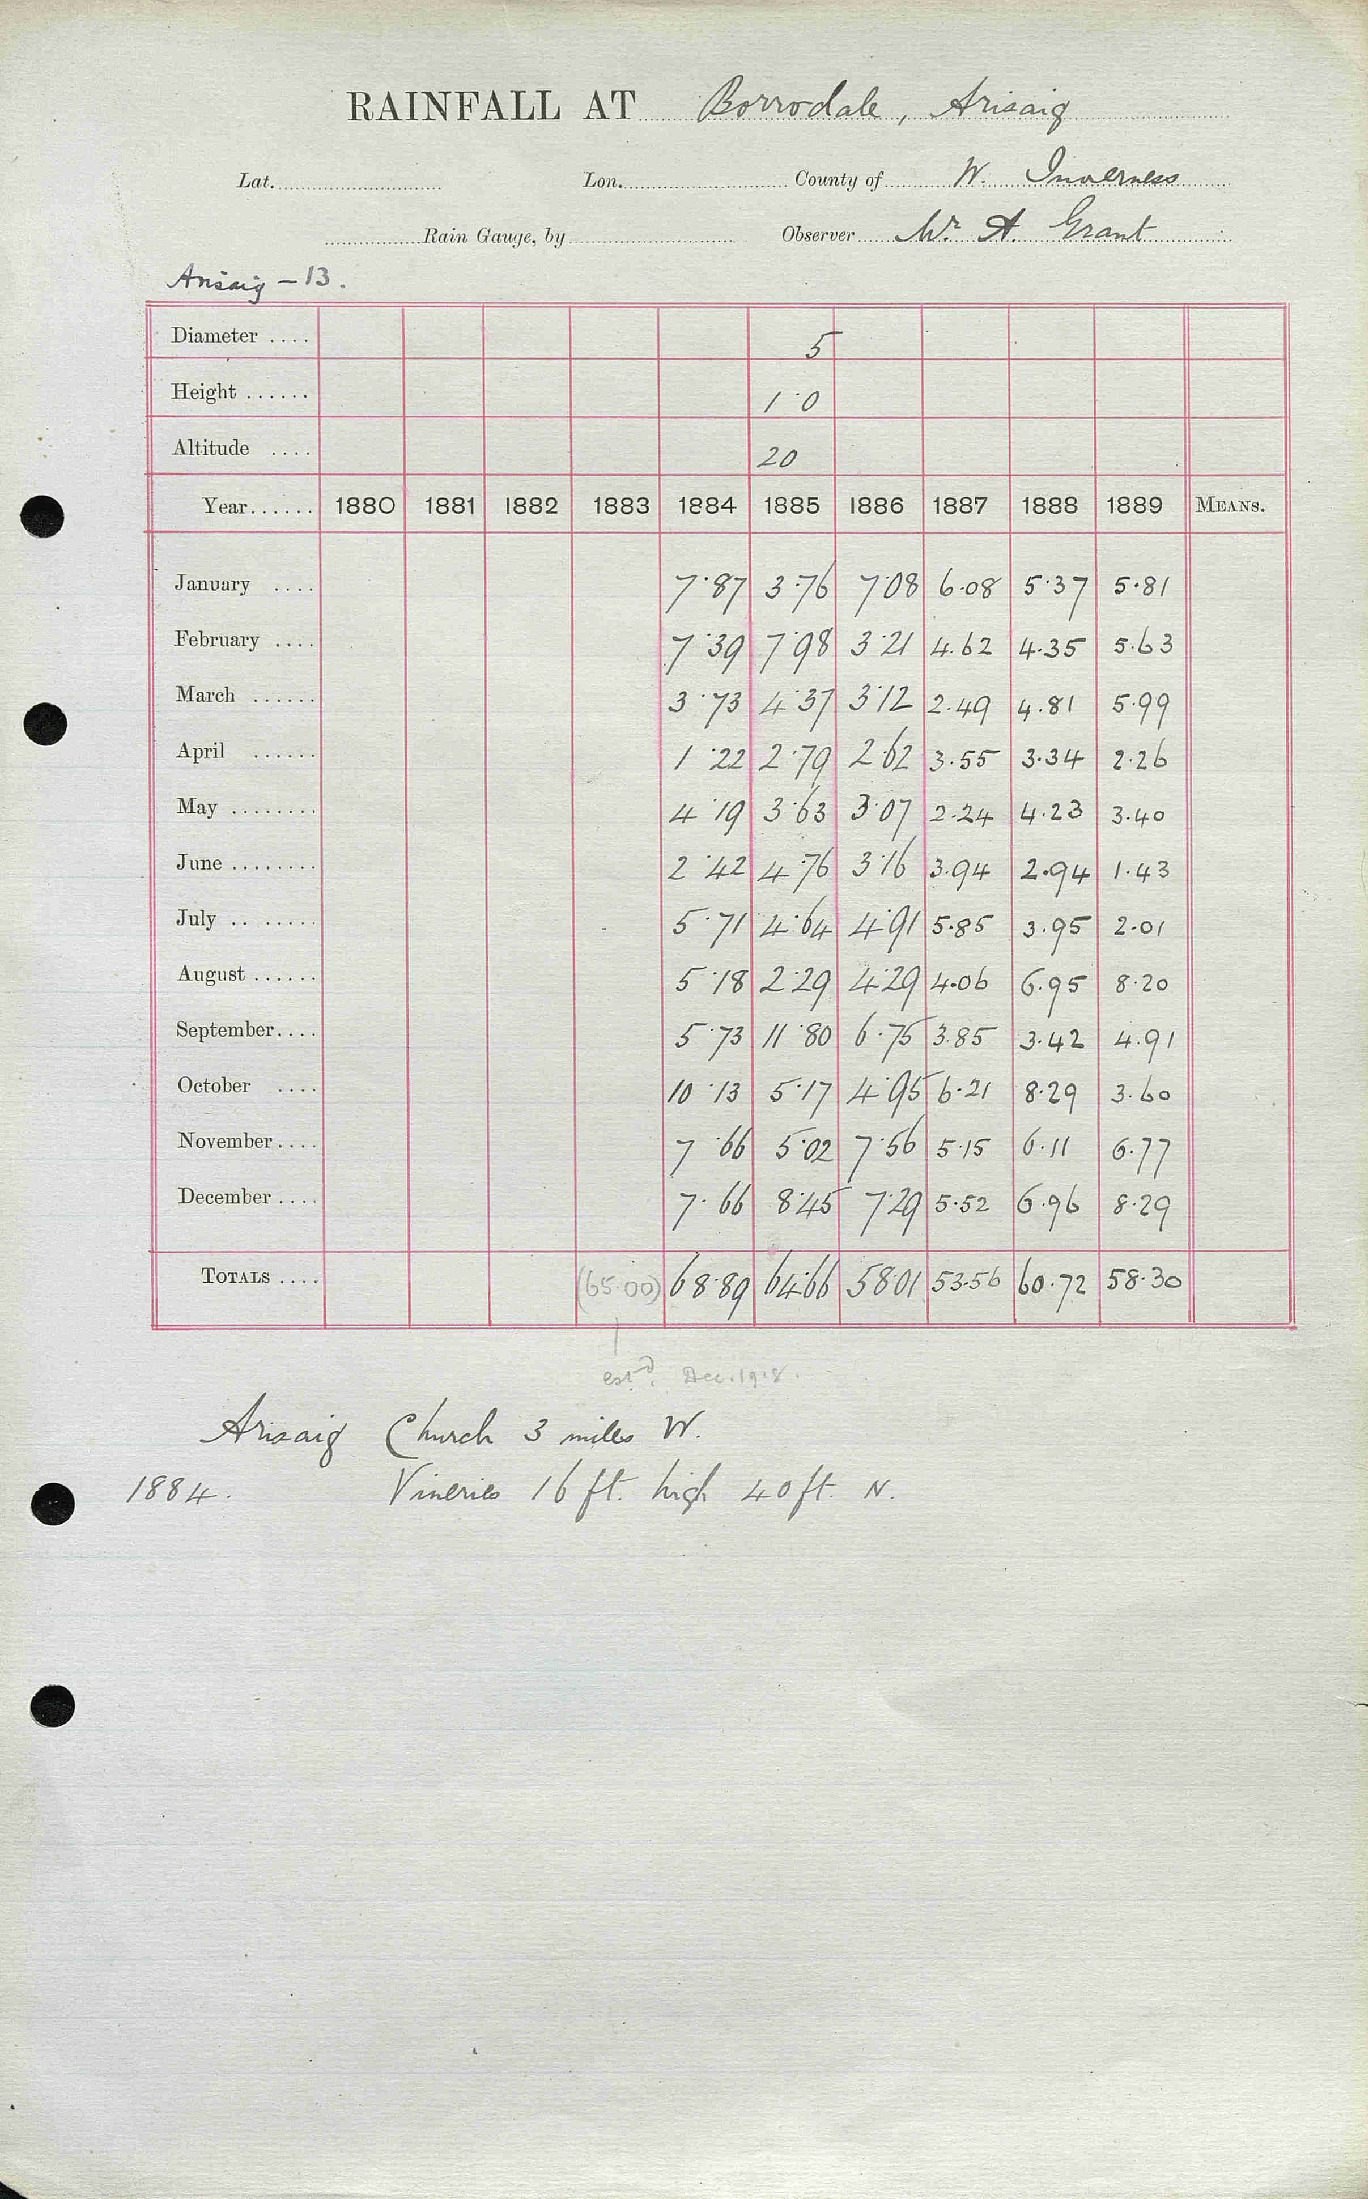 RAINFALL AT Borrodale, Arisaig
Lat. Lon. County of W. Inverness
Rain Gauge, by Observer Mr A. Grant
Arisaig – 13.
Diameter .... 5
Height ...... 1·0
Altitude .... 20
Year...... 1880 1881 1882 1883 1884 1885 1886 1887 1888 1889 MEANS.
January .... 7·87 3·76 7·08 6·08 5·37 5·81
February .... 7·39 7·98 3·21 4·62 4·35 5·63
March ...... 3·73 4·37 3·12 2·49 4·81 5·99
April ...... 1·22 2·79 2·62 3·55 3·34 2·26
May ........ 4·19 3·63 3·07 2·24 4·23 3·40
June ........ 2·42 4·76 3·16 3·94 2·94 1·43
July ........ 5·71 4·64 4·91 5·85 3·95 2·01
August ...... 5·18 2·29 4·29 4·06 6·95 8·20
September.... 5·73 11·80 6·75 3·85 3·42 4·91
October .... 10·13 5·17 4·95 6·21 8·29 3·60
November.... 7·66 5·02 7·56 5·15 6·11 6·77
December .... 7·66 8·45 7·29 5·52 6·96 8·29
TOTALS .... (65·00) 68·89 64·66 58·01 53·56 60·72 58·30
estd. Dec. 1918.
Arisaig Church 3 miles W.
1884. Vineries 16 ft. high 40 ft. N.